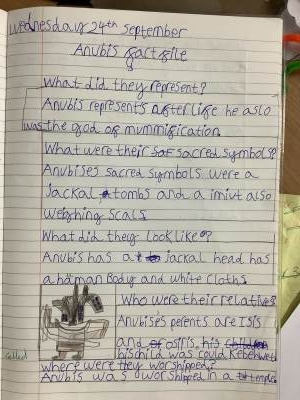 Wednesday 24th September
Anubis fact file
What did they represent?
Anubis represents afterlife he aslo
was the god of mummification
What were their sacred symbol?
Anubises sacred symbols were a
Jackal, tombs and a imiut also
weighing scals
What did they look like?
Anubis has a jackal head has
a human Body and white cloths.
Who were their relative?
Anubises perents are Isis
and osiris, his
his child was could Kebehwet
called
where were they worshipped?
Anubis was worshipped in a temple